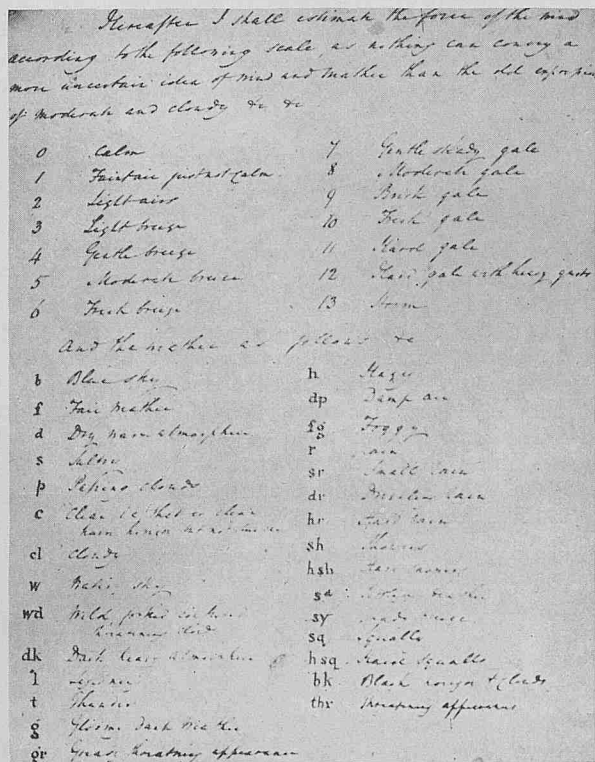 Hereafter I shall estimate the force of the wind
according to the following scale, as nothing can convey a
more uncertain idea of wind and weather than the old expressions
of moderate and cloudy &c &c
0 Calm
1 Faint air just not calm.
2 Light airs
3 Light breeze
4 Gentle breeze
5 Moderate breeze
6 Fresh breeze
7 Gentle steady gale
8 Moderate gale
9 Brisk gale
10 Fresh gale
11 Hard gale
12 Hard gale with heavy gusts
13 Storm
And the weather as follows &c
b Blue sky
f Fair weather
d Dry warm atmosphere
s Sultry
p Passing clouds
c Clear
cl Cloudy
w Watery sky
wd Wild
dk Dark heavy atmosphere
l Lightning
t Thunder
g Gloomy dark weather
gr Greasy threatening appearance
h Hazy
dp Damp air
fg Foggy
r rain
sr Small rain
dr Drizzling rain
hr Hard rain
sh Showers
hsh Hard showers
sa
sy
sq Squalls
hsq Hard squalls
bk Black clouds
thr threatening appearance